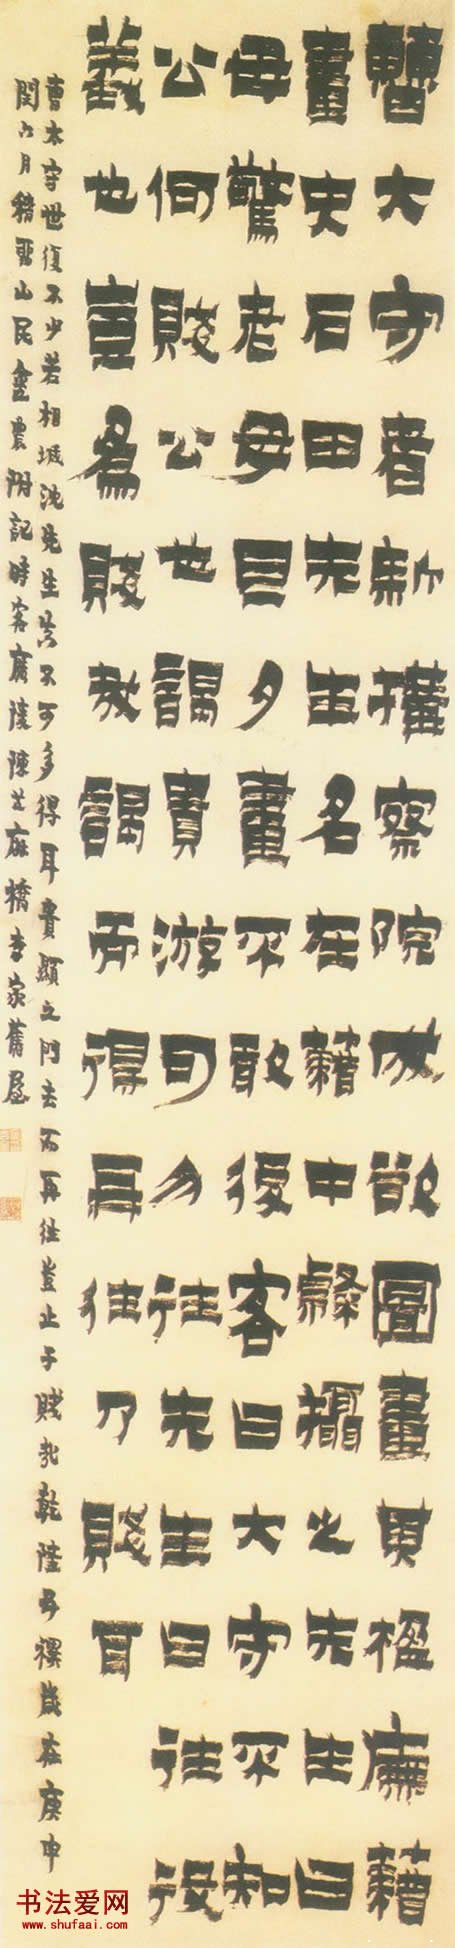 曹大守者新搉察院成欲圖畫其楹廡籍
畫史石田先生名在籍中隸攝之先生曰
毋驚老母旦夕畫不敢後客曰大守不知
公何賤公也謁貴游可勿往先生曰往役
義也豈為賤哉謁而得再往乃賤耳
曹太守世復不少若相城沈先生不可多得耳貴顯之門去而再往豈止于賤哉乾隆五禩歲在庚申
閏六月稽留山民金農附記時客廣陵陳橋李家舊屋
书法爱网
www.shufaai.com